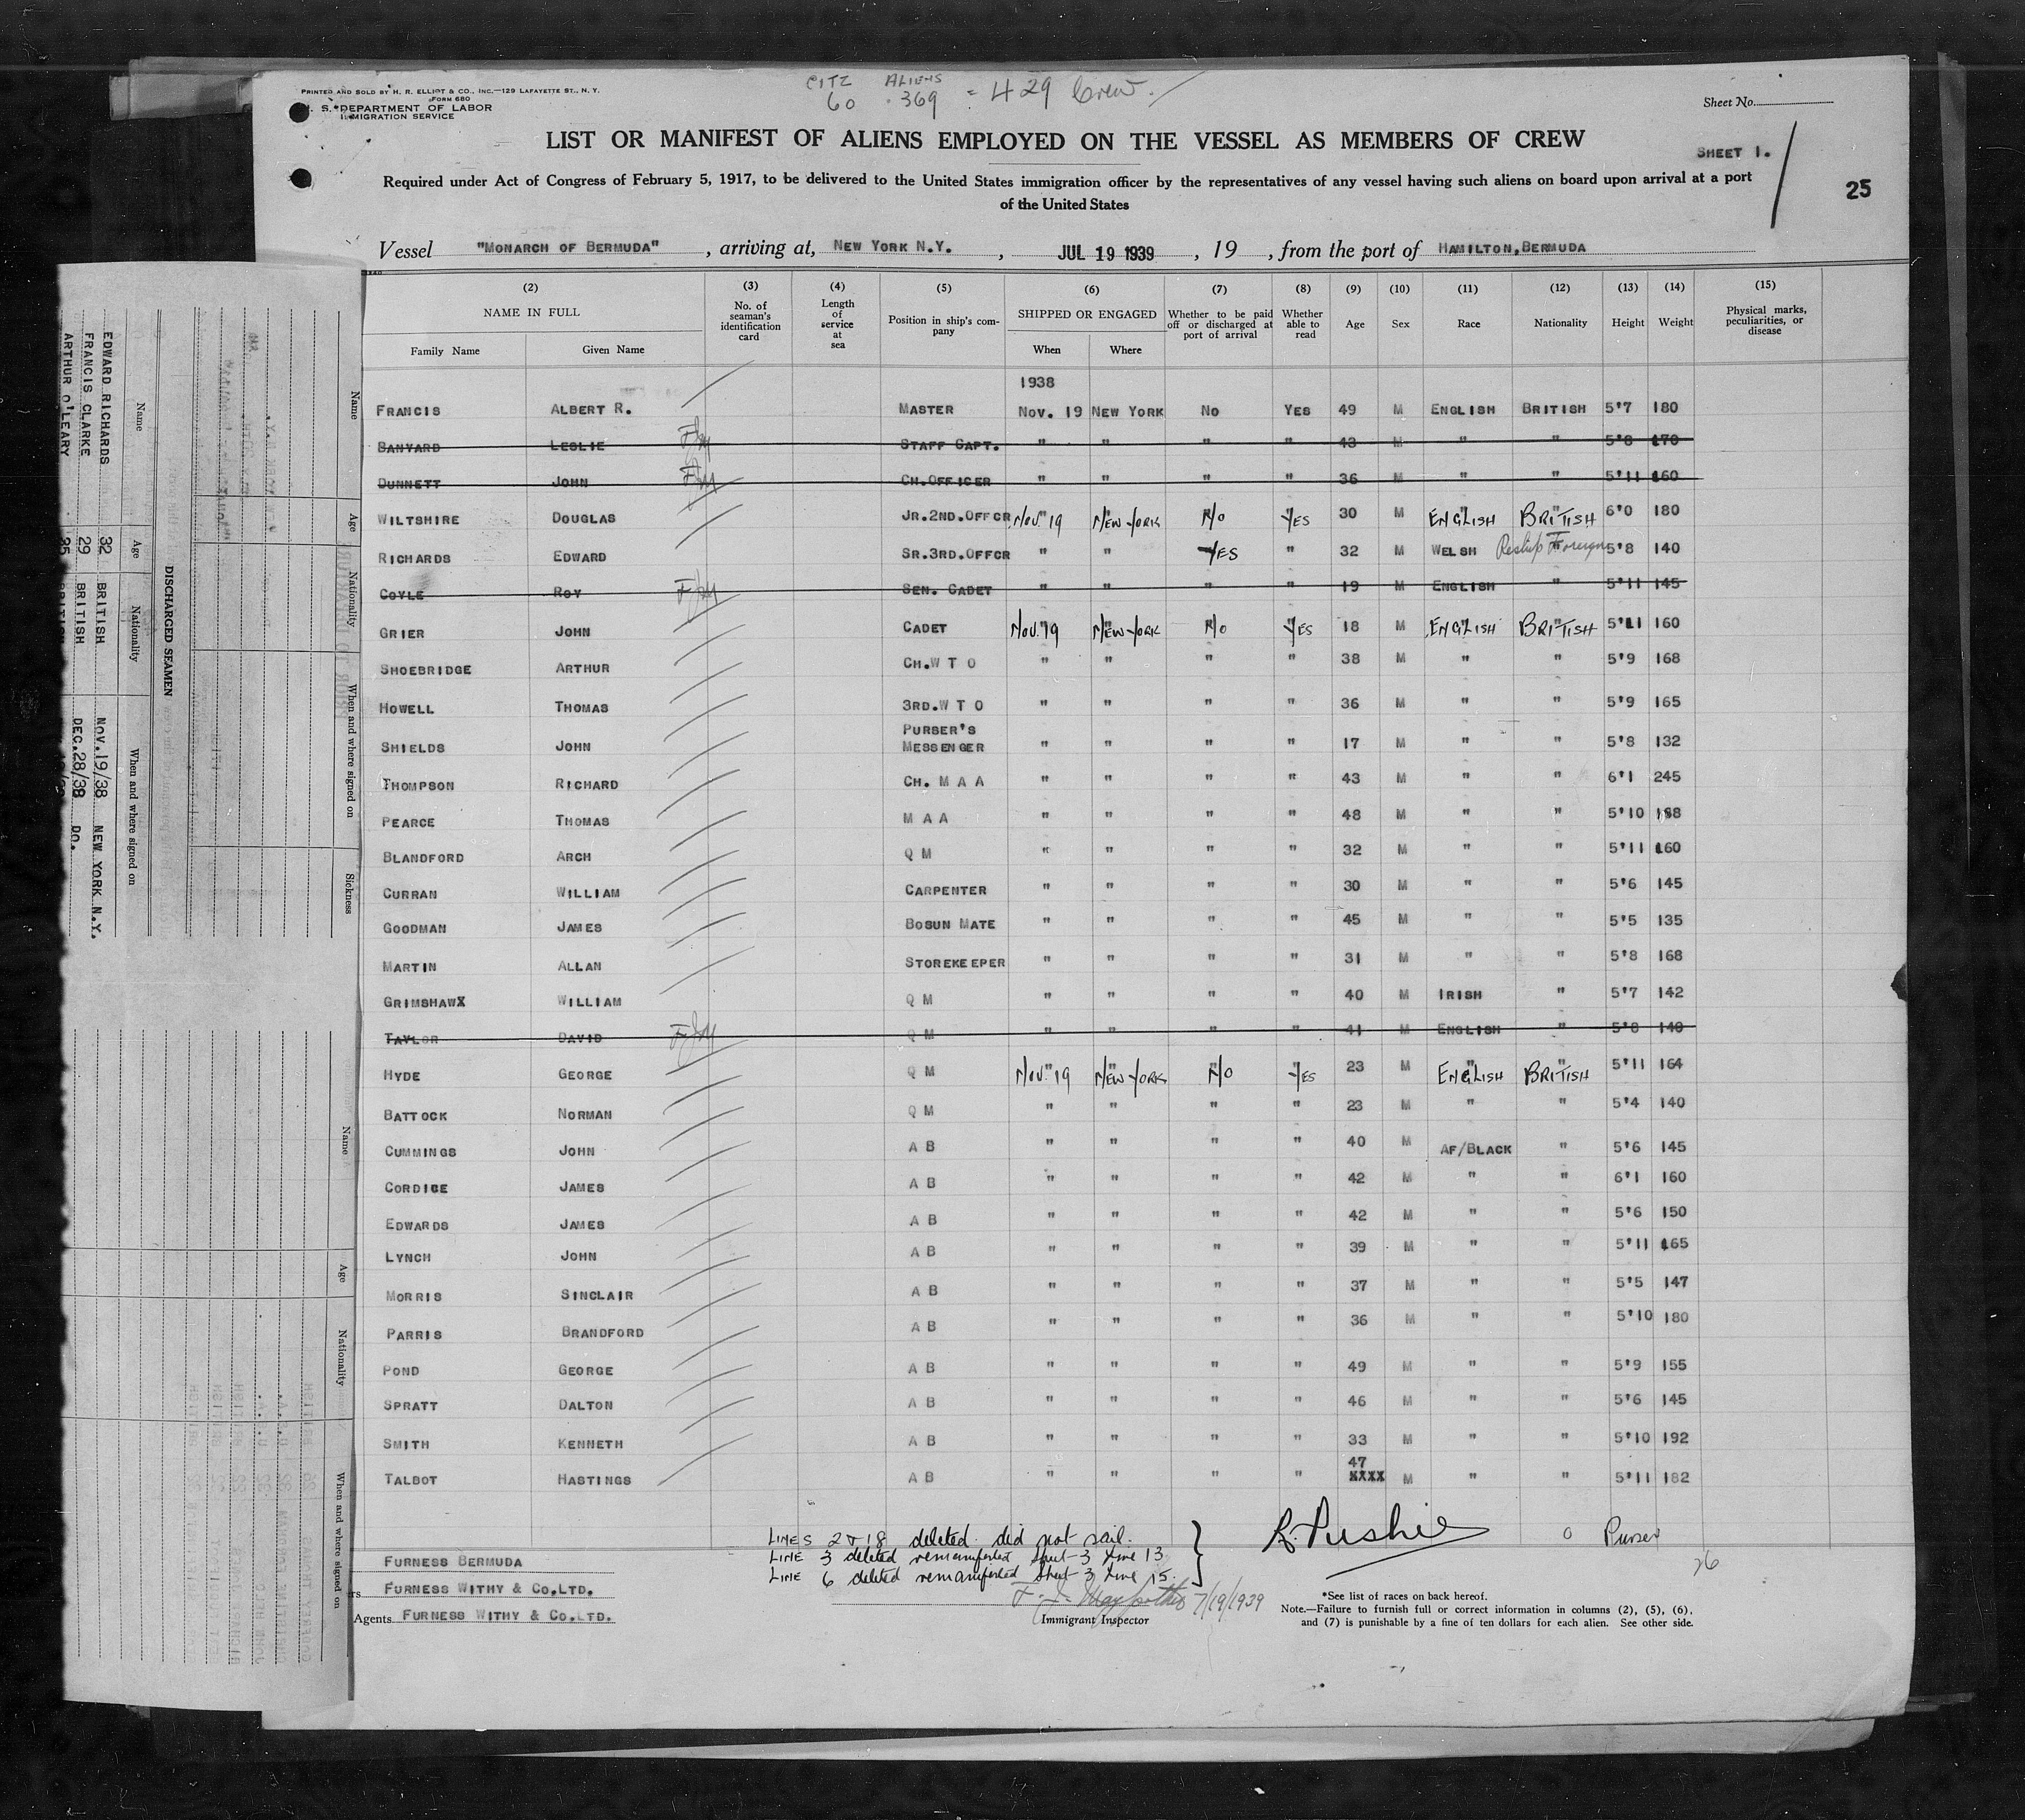 CITZ ALIENS
60 · 369 = 429 Crew.
PRINTED AND SOLD BY H. R. ELLIOT & CO., INC.—129 LAFAYETTE ST., N. Y.
FORM 680
S. DEPARTMENT OF LABOR
IMMIGRATION SERVICE
Sheet No.
LIST OR MANIFEST OF ALIENS EMPLOYED ON THE VESSEL AS MEMBERS OF CREW
SHEET 1.
25
Required under Act of Congress of February 5, 1917, to be delivered to the United States immigration officer by the representatives of any vessel having such aliens on board upon arrival at a port
of the United States
Vessel "MONARCH OF BERMUDA" , arriving at, NEW YORK N.Y. , JUL 19 1939 , 19 , from the port of HAMILTON,BERMUDA
(2) (3) (4) (5) (6) (7) (8) (9) (10) (11) (12) (13) (14) (15)
NAME IN FULL No. of seaman's identification card Length of service at sea Position in ship's company SHIPPED OR ENGAGED Whether to be paid off or discharged at port of arrival Whether able to read Age Sex Race Nationality Height Weight Physical marks, peculiarities, or disease
Family Name Given Name When Where
1938
FRANCIS ALBERT R. MASTER NOV. 19 NEW YORK NO YES 49 M ENGLISH BRITISH 5'7 180
BANYARD LESLIE STAFF CAPT. " " " " 43 M " " 5'8 170
DUNNETT JOHN CH.OFFICER " " " " 36 M " " 5'11 160
WILTSHIRE DOUGLAS JR.2ND.OFFCR NOV. 19 NEW YORK NO YES 30 M ENGLISH BRITISH 6'0 180
RICHARDS EDWARD SR.3RD.OFFCR " " YES " 32 M WELSH " Reship Foreign 5'8 140
COYLE ROY SEN. CADET " " " " 19 M ENGLISH " 5'11 145
GRIER JOHN CADET NOV. 19 NEW YORK NO YES 18 M ENGLISH BRITISH 5'11 160
SHOEBRIDGE ARTHUR CH.W T O " " " " 38 M " " 5'9 168
HOWELL THOMAS 3RD.W T O " " " " 36 M " " 5'9 165
PURSER'S
SHIELDS JOHN MESSENGER " " " " 17 M " " 5'8 132
THOMPSON RICHARD CH. M A A " " " " 43 M " " 6'1 245
PEARCE THOMAS M A A " " " " 48 M " " 5'10 188
BLANDFORD ARCH Q M " " " " 32 M " " 5'11 160
CURRAN WILLIAM CARPENTER " " " " 30 M " " 5'6 145
GOODMAN JAMES BOSUN MATE " " " " 45 M " " 5'5 135
MARTIN ALLAN STOREKEEPER " " " " 31 M " " 5'8 168
GRIMSHAWX WILLIAM Q M " " " " 40 M IRISH " 5'7 142
TAYLOR DAVID Q M " " " " 41 M ENGLISH " 5'8 140
HYDE GEORGE Q M NOV. 19 NEW YORK NO YES 23 M ENGLISH BRITISH 5'11 164
BATTOCK NORMAN Q M " " " " 23 M " " 5'4 140
CUMMINGS JOHN A B " " " " 40 M AF/BLACK " 5'6 145
CORDICE JAMES A B " " " " 42 M " " 6'1 160
EDWARDS JAMES A B " " " " 42 M " " 5'6 150
LYNCH JOHN A B " " " " 39 M " " 5'11 165
MORRIS SINCLAIR A B " " " " 37 M " " 5'5 147
PARRIS BRANDFORD A B " " " " 36 M " " 5'10 180
POND GEORGE A B " " " " 49 M " " 5'9 155
SPRATT DALTON A B " " " " 46 M " " 5'6 145
SMITH KENNETH A B " " " " 33 M " " 5'10 192
47
TALBOT HASTINGS A B " " " " XXXX M " " 5'11 182
LINES 2 & 18 deleted. did not sail.
LINE 3 deleted remanifested Sheet 3 Line 13
LINE 6 deleted remanifested Sheet 3 Line 15.
Purser
26
FURNESS BERMUDA
FURNESS WITHY & CO.LTD.
Agents FURNESS WITHY & CO.LTD.
7/19/1939
Immigrant Inspector
*See list of races on back hereof.
Note.—Failure to furnish full or correct information in columns (2), (5), (6),
and (7) is punishable by a fine of ten dollars for each alien. See other side.
DISCHARGED SEAMEN
Name Age Nationality When and where signed on
EDWARD RICHARDS 32 BRITISH NOV.19/38 NEW YORK N.Y.
FRANCIS CLARKE 29 BRITISH DEC.28/38 DO.
ARTHUR O'LEARY
Name Age Nationality When and where signed on Sickness
Name Age Nationality When and where signed on